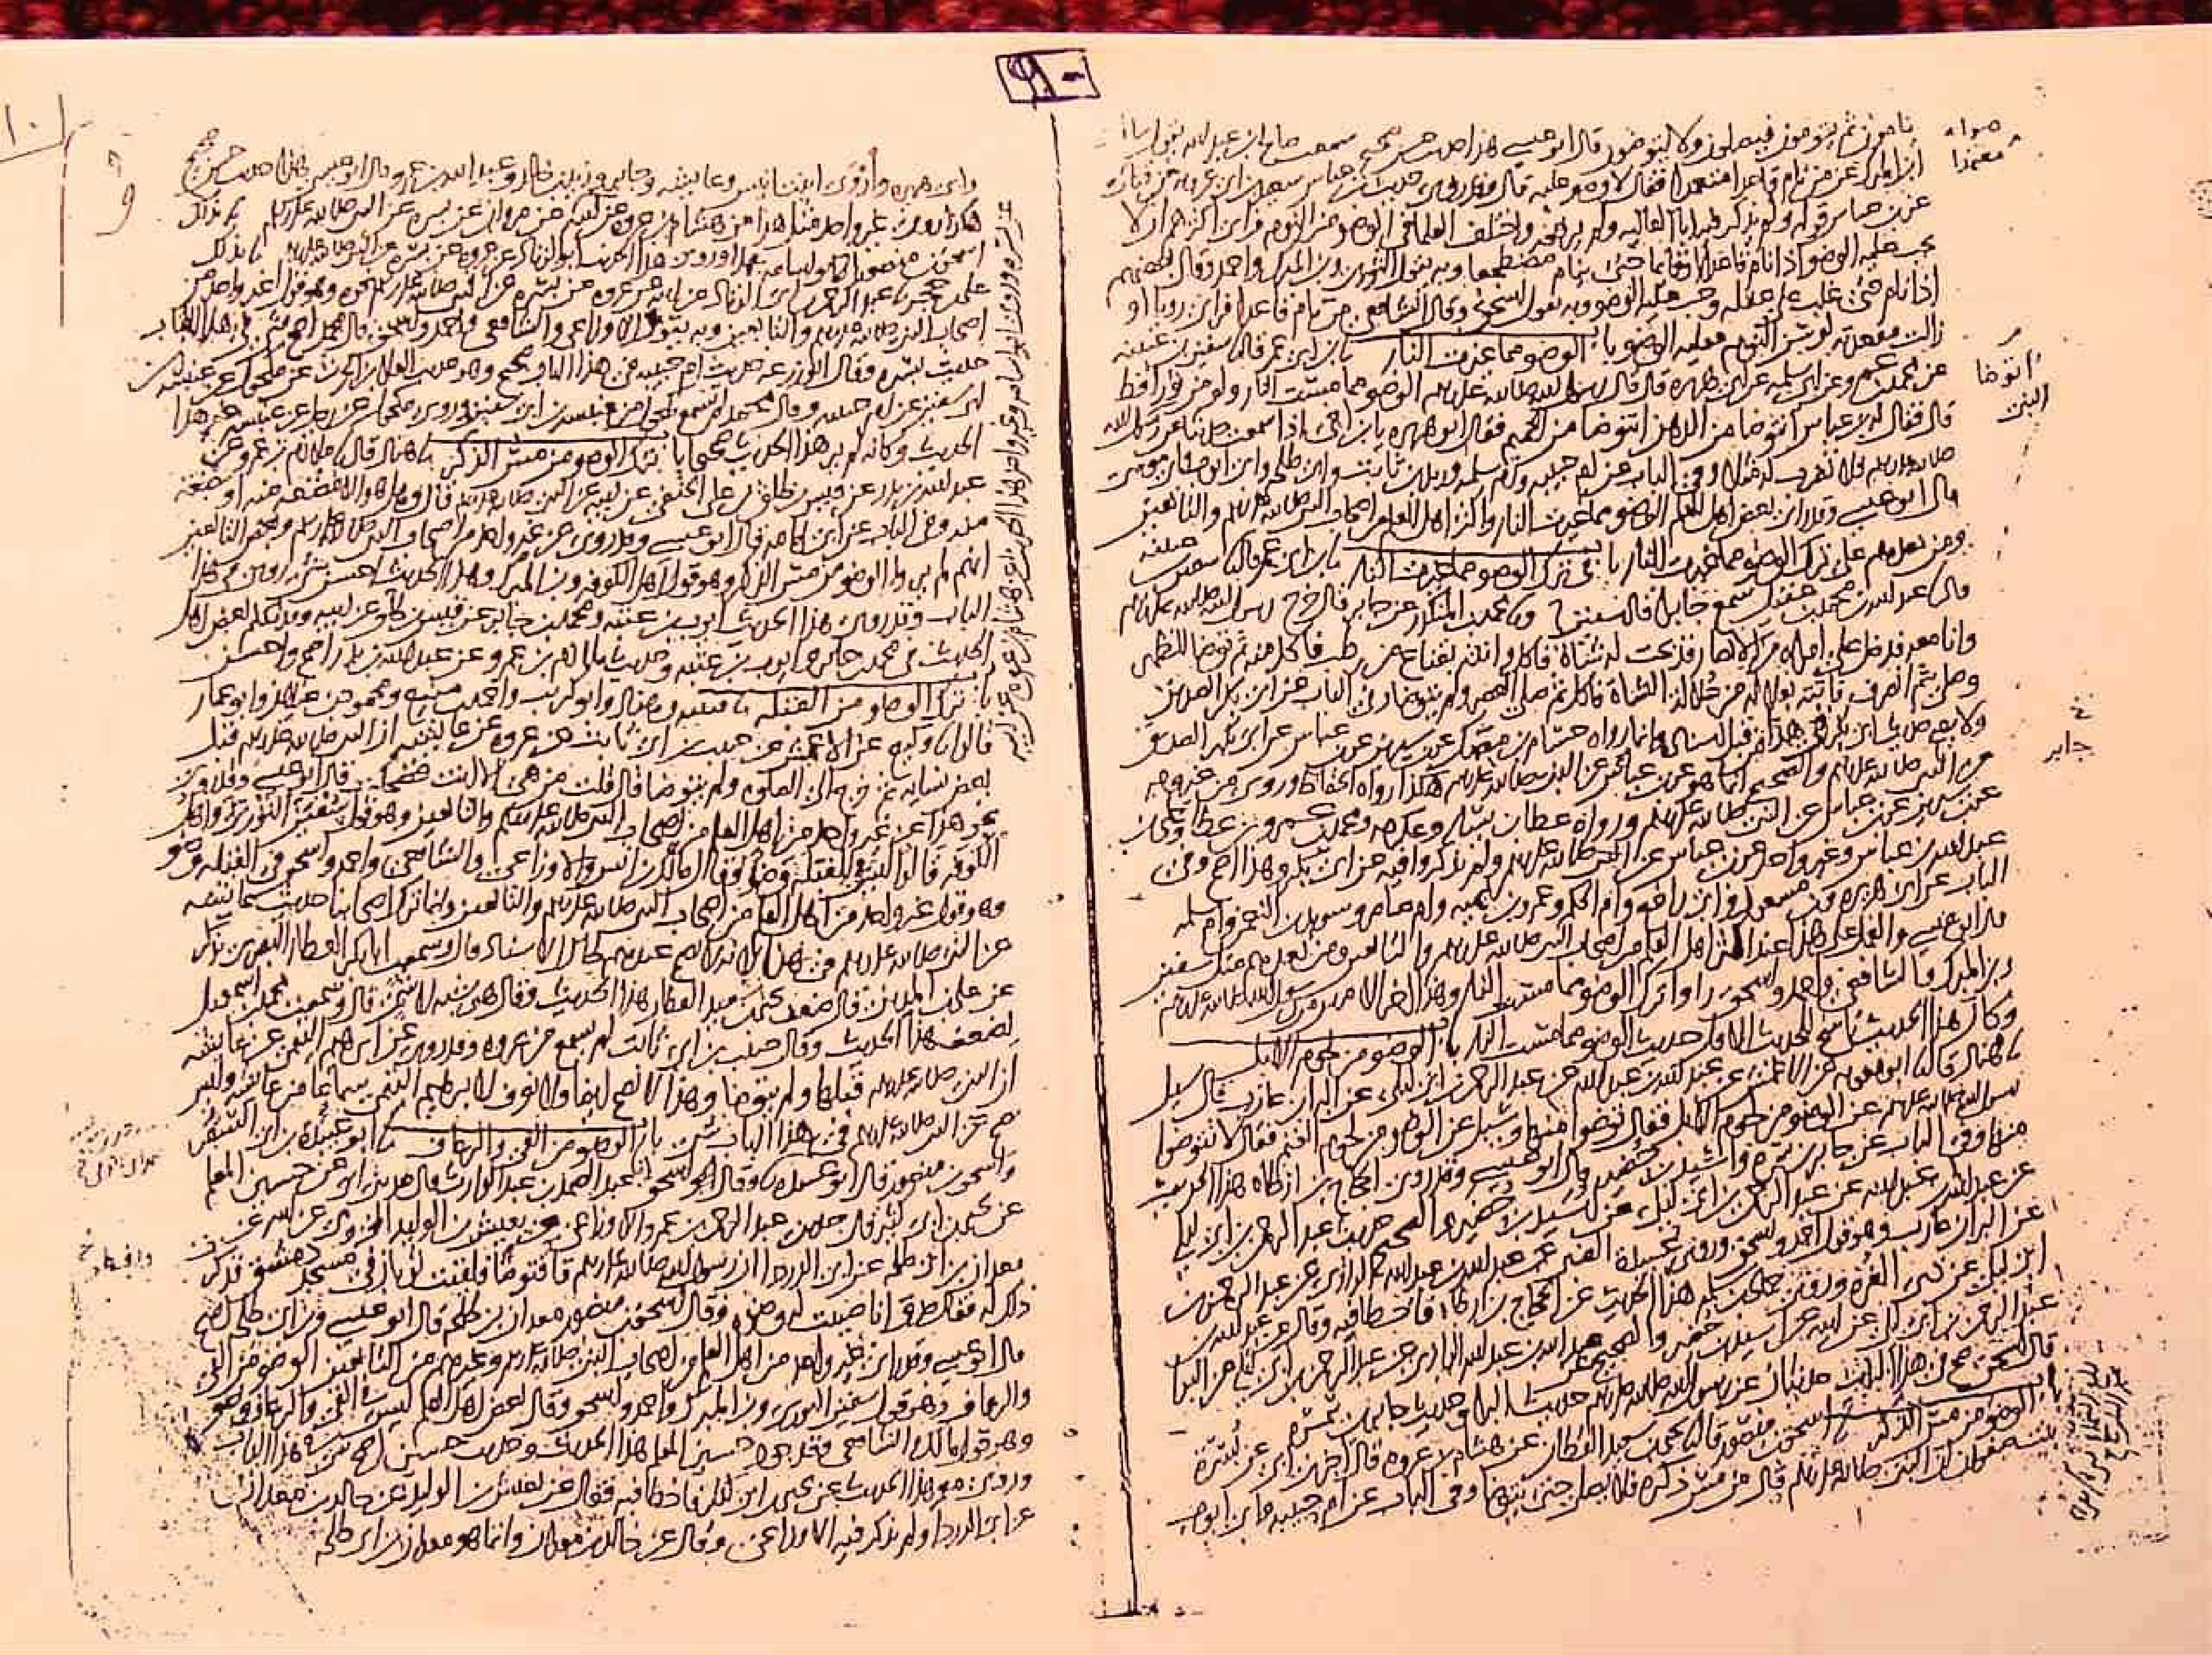 ٩٠
نامون ثم يقومون فيصلون ولا يتوضون قال ابو عيسى هذا حديث حسن صحيح سمعت صالح ابن عبد الله يقول سالت
ابن المبارك عن من نام قاعدا متعمدا فقال لا وضو عليه قال وقد روى حديث ابن عباس سعيد بن ابي عروبه عن قتاده
عن بن عباس قوله ولم يذكر فيه ابا العاليه ولم يرفعه واختلف العلما في الوضو من النوم فراى اكثرهم ان لا
يجب عليه الوضو اذا نام قاعدا او قايما حتى ينام مضطجعا وبه يقول الثوري وبن المبرك واحمد وقال بعضهم
اذا نام حتى غلب على عقله وجب عليه الوضو وبه يقول اسحق وقال الشافعي من نام قاعدا فراى رويا او
زالت مقعدته لوسن النوم فعليه الوضو باب الوضو مما غيرت النار ابن ابي عمر قال سفين بن عيينه
عن محمد بن عمرو عن ابي سلمه عن ابي هريره قال قال رسول الله صلى الله عليه وسلم الوضو مما مست النار ولو من ثور اقط
قال فقال له بن عباس انتوضا من الدهن انتوضا من الحميم فقال ابو هريره يا بن اخي اذا سمعت حديثا عن رسول الله
صلى الله عليه وسلم فلا تضرب له مثلا وفي الباب عن ام حبيبه وام سلمه وزيد بن ثابت وابي طلحه وابي ايوب وابي موسى
قال ابو عيسى وقد راى بعض اهل العلم الوضو مما غيرت النار واكثر اهل العلم من اصحاب النبي صلى الله عليه وسلم والتابعين
ومن بعدهم على ترك الوضو مما غيرت النار باب في ترك الوضو مما غيرت النار ابن ابي عمر قال سفين بن عيينه
قال عبد الله بن محمد بن عقيل سمع جابرا قال سفين ومحمد بن المنكدر عن جابر قال خرج رسول الله صلى الله عليه وسلم
وانا معه فدخل على امراه من الانصار فذبحت له شاة فاكل واتته بقناع من رطب فاكل منه ثم توضا للظهر
وصلى ثم انصرف فاتته بعلاله من علاله الشاة فاكل ثم صلى العصر ولم يتوضا وفي الباب عن ابي بكر الصديق
ولا يصح حديث ابي بكر في هذا من قبل اسناده انما رواه حسام بن مصك عن بن سيرين عن بن عباس عن ابي بكر الصديق
عن النبي صلى الله عليه وسلم والصحيح انما هو عن بن عباس عن النبي صلى الله عليه وسلم هكذا رواه الحفاظ وروي من غير وجه
عن بن سيرين عن بن عباس عن النبي صلى الله عليه وسلم ورواه عطا بن يسار وعكرمه ومحمد بن عمرو بن عطا وعلي بن
عبد الله بن عباس وغير واحد عن بن عباس عن النبي صلى الله عليه وسلم ولم يذكروا فيه عن ابي بكر وهذا اصح وفي
الباب عن ابي هريره وبن مسعود وابي رافع وام الحكم وعمرو بن اميه وام عامر وسويد بن النعمن وام سلمه
قال ابو عيسى والعمل على هذا عند اكثر اهل العلم من اصحاب النبي صلى الله عليه وسلم والتابعين ومن بعدهم مثل سفين
وبن المبرك والشافعي واحمد واسحق راوا ترك الوضو مما مست النار وهذا اخر الامرين من رسول الله صلى الله عليه وسلم
وكان هذا الحديث ناسخ للحديث الاول حديث الوضو مما مست النار باب الوضو من لحوم الابل
هناد قال ابو معويه عن الاعمش عن عبد الله بن عبد الله عن عبد الرحمن ابن ابي ليلى عن البرا بن عازب قال سيل
رسول الله صلى الله عليه وسلم عن الوضو من لحوم الابل فقال توضوا منها وسيل عن الوضو من لحوم الغنم فقال لا تتوضوا
منها وفي الباب عن جابر بن سمره واسيد بن حضير قال ابو عيسى وقد روى الحجاج بن ارطاه هذا الحديث
عن عبد الله بن عبد الله عن عبد الرحمن بن ابي ليلى عن اسيد بن حضير والصحيح حديث عبد الرحمن بن ابي ليلى
عن البرا بن عازب وهو قول احمد واسحق وروى عبيدة الضبي عن عبد الله بن عبد الله الرازي عن عبد الرحمن بن
ابي ليلى عن ذي الغره وروى حماد بن سلمه هذا الحديث عن الحجاج بن ارطاه فاخطا فيه وقال عن عبد الله بن
عبد الرحمن بن ابي ليلى عن ابيه عن اسيد بن حضير والصحيح عن عبد الله بن عبد الله الرازي عن عبد الرحمن بن ابي ليلى عن البرا
قال اسحق صح في هذا الباب حديثان عن رسول الله صلى الله عليه وسلم حديث البرا وحديث جابر بن سمره
باب الوضو من مس الذكر اسحق بن منصور قال يحيى بن سعيد القطان عن هشام بن عروه قال اخبرني ابي عن بسره
بنت صفوان ان النبي صلى الله عليه وسلم قال من مس ذكره فلا يصل حتى يتوضا وفي الباب عن ام حبيبه وابي ايوب
معتمدا
انتوضا
جابر
١٠
٩
وابي هريره واروى ابنت انيس وعايشه وجابر وزيد بن خالد وعبد الله بن عمرو قال ابو عيسى هذا حديث حسن صحيح
هكذا روى غير واحد مثل هذا عن هشام بن عروه عن ابيه عن مروان عن بسره عن النبي صلى الله عليه وسلم بذلك
اسحق بن منصور ابو اسامه بهذا وروى هذا الحديث ابو الزناد عن عروه عن بسره عن النبي صلى الله عليه وسلم بذلك
علي بن حجر عبد الرحمن بن ابي الزناد عن ابيه عن عروه عن بسره عن النبي صلى الله عليه وسلم نحوه وهو قول غير واحد من
اصحاب النبي صلى الله عليه وسلم والتابعين وبه يقول الاوزاعي والشافعي واحمد واسحق قال محمد اصح شي في هذا الباب
حديث بسره وقال ابو زرعه حديث ام حبيبه في هذا الباب صحيح وهو حديث العلا بن الحرث عن مكحول عن عنبسه بن
ابي سفين عن ام حبيبه وقال محمد لم يسمع مكحول من عنبسه بن ابي سفين وروى مكحول عن رجل عن عنبسه غير هذا
الحديث وكانه لم ير هذا الحديث صحيحا باب ترك الوضو من مس الذكر هناد قال ملازم بن عمرو عن
عبد الله بن بدر عن قيس بن طلق بن علي الحنفي عن ابيه عن النبي صلى الله عليه وسلم قال وهل هو الا مضغه منه او بضعه
منه وفي الباب عن ابي امامه قال ابو عيسى وقد روى عن غير واحد من اصحاب النبي صلى الله عليه وسلم وبعض التابعين
انهم لم يروا الوضو من مس الذكر وهو قول اهل الكوفه وبن المبرك وهذا الحديث احسن شي روي في هذا
الباب وقد روى هذا الحديث ايوب بن عتبه ومحمد بن جابر عن قيس بن طلق عن ابيه وقد تكلم بعض اهل
الحديث في محمد بن جابر وايوب بن عتبه وحديث ملازم بن عمرو عن عبد الله بن بدر اصح واحسن
باب ترك الوضو من القبله قتيبه وهناد وابو كريب واحمد بن منيع ومحمود بن غيلان وابو عمار
قالوا وكيع عن الاعمش عن حبيب بن ابي ثابت عن عروه عن عايشه ان النبي صلى الله عليه وسلم قبل
بعض نسايه ثم خرج الى الصلوه ولم يتوضا قال قلت من هي الا انت فضحكت قال ابو عيسى وقد روى
نحو هذا عن غير واحد من اهل العلم من اصحاب النبي صلى الله عليه وسلم والتابعين وهو قول سفين الثوري واهل
الكوفه قالوا ليس في القبله وضو وقال مالك بن انس والاوزاعي والشافعي واحمد واسحق في القبله وضو
وهو قول غير واحد من اهل العلم من اصحاب النبي صلى الله عليه وسلم والتابعين وانما ترك اصحابنا حديث عايشه
عن النبي صلى الله عليه وسلم في هذا لانه لا يصح عندهم لحال الاسناد قال وسمعت ابا بكر العطار البصري يذكر
عن علي بن المديني قال ضعف يحيى بن سعيد القطان هذا الحديث وقال هو شبه لا شي قال وسمعت محمد بن اسمعيل
يضعف هذا الحديث وقال حبيب بن ابي ثابت لم يسمع من عروه وقد روى عن ابرهيم التيمي عن عايشه
ان النبي صلى الله عليه وسلم قبلها ولم يتوضا وهذا لا يصح ايضا ولا نعرف لابرهيم التيمي سماعا من عايشه وليس
يصح عن النبي صلى الله عليه وسلم في هذا الباب شي باب الوضو من القي والرعاف ابو عبيده بن ابي السفر
واسحق بن منصور قال ابو عبيده وقال اسحق عبد الصمد بن عبد الوارث قال حدثني ابي عن حسين المعلم
عن يحيى بن ابي كثير قال حدثني عبد الرحمن بن عمرو الاوزاعي عن يعيش بن الوليد المخزومي عن ابيه عن
معدان بن ابي طلحه عن ابي الدردا ان رسول الله صلى الله عليه وسلم قا فتوضا فلقيت ثوبان في مسجد دمشق فذكرت
ذلك له فقال صدق انا صببت له وضوه وقال اسحق بن منصور معدان بن طلحه قال ابو عيسى وبن ابي طلحه اصح
قال ابو عيسى وقد راى غير واحد من اهل العلم من اصحاب النبي صلى الله عليه وسلم وغيرهم من التابعين الوضو من القي
والرعاف وهو قول سفين الثوري وبن المبرك واحمد واسحق وقال بعض اهل العلم ليس في القي والرعاف وضو
وهو قول مالك والشافعي وقد جود حسين المعلم هذا الحديث وحديث حسين اصح شي في هذا الباب
وروى معمر هذا الحديث عن يحيى بن ابي كثير فاخطا فيه فقال عن يعيش بن الوليد عن خالد بن معدان
عن ابي الدردا ولم يذكر فيه الاوزاعي وقال عن خالد بن معدان وانما هو معدان بن ابي طلحه